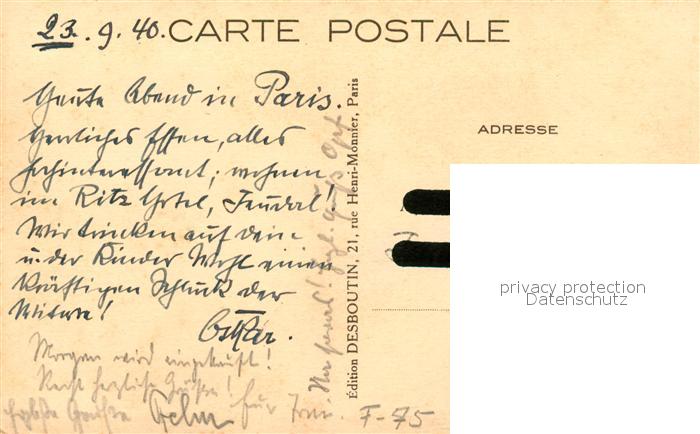 23. 9. 40. CARTE POSTALE
Heute Abend in Paris.
Herrliches Essen, alles
hochinteressant; wohnen
im Ritz Hotel, Feudal!
Wir trinken auf dein
u. der Kinder Wohl einen
kräftigen Schluck der
Witwe!
Oskar.
Morgen wird eingekauft!
Recht herzliche Grüße!
Grüsse
F-75
Édition DESBOUTIN, 21, rue Henri-Monnier, Paris
ADRESSE
privacy protection
Datenschutz